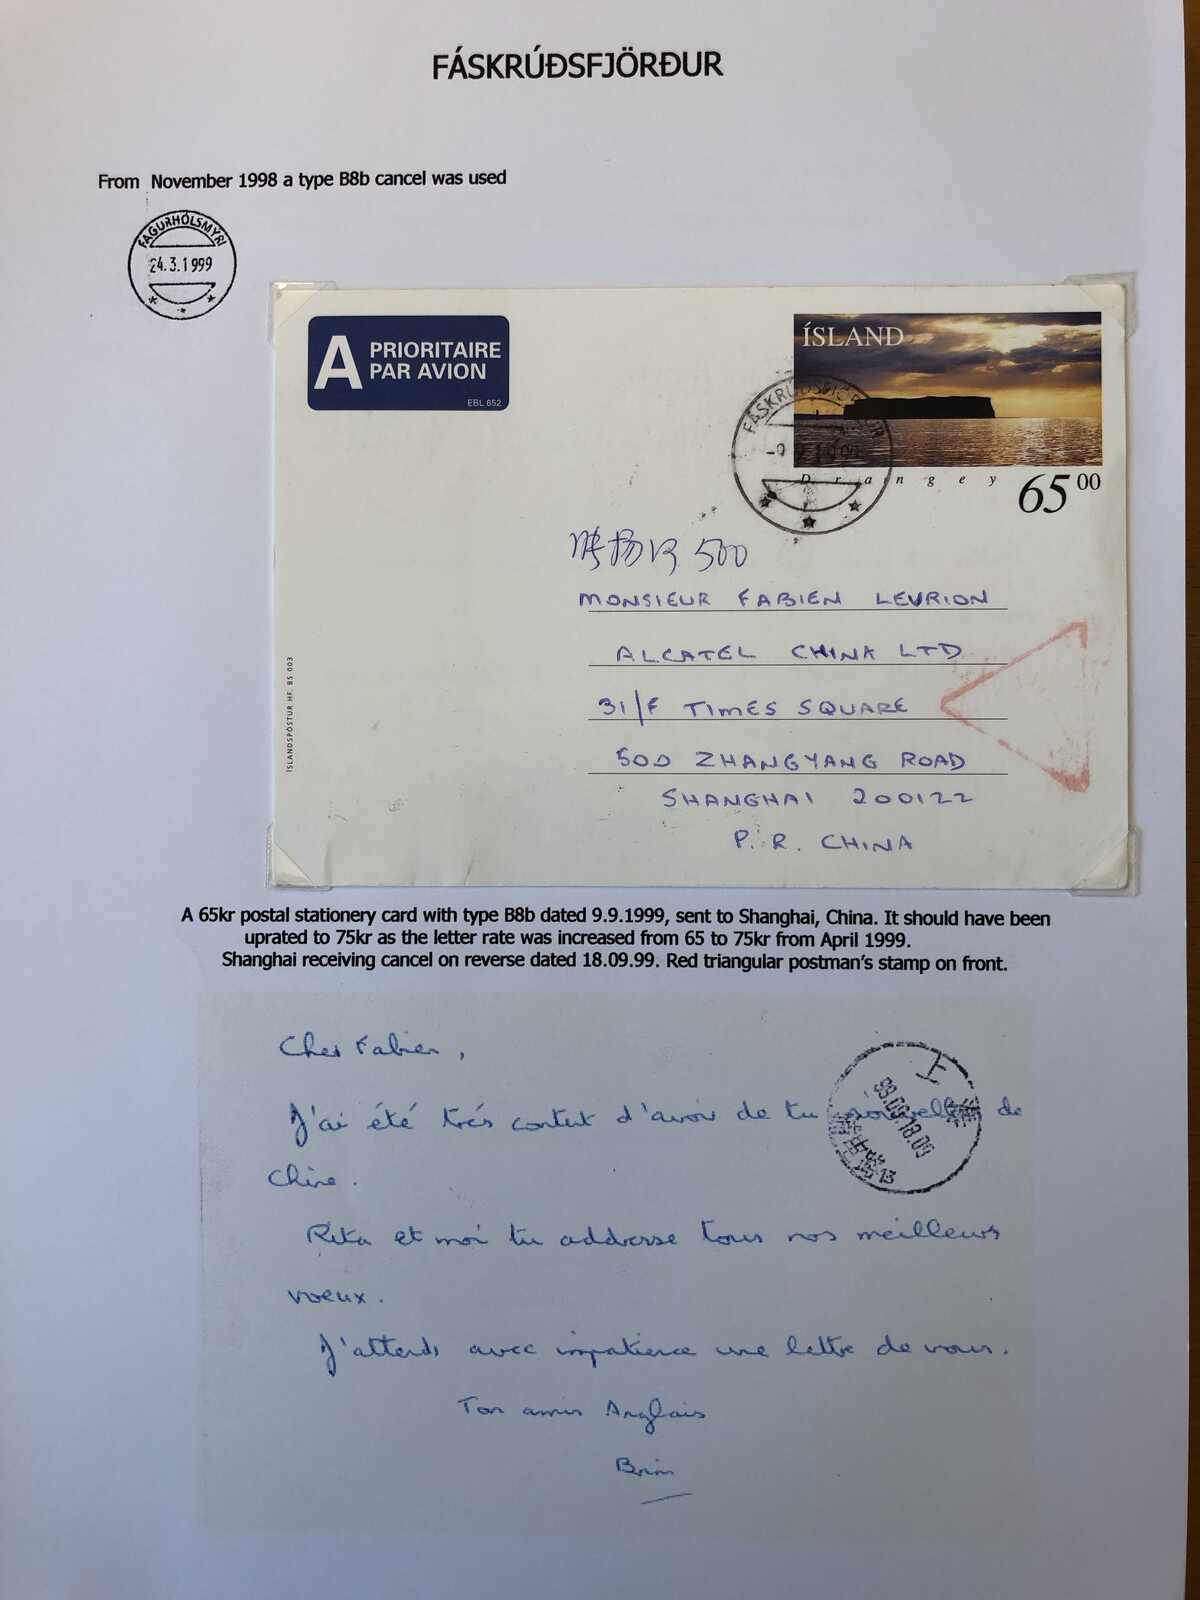 FÁSKRÚÐSFJÖRÐUR
From November 1998 a type B8b cancel was used
FAGURHÓLSMÝRI
24.3.1999
A PRIORITAIRE
PAR AVION
EBL 652
ÍSLAND
FÁSKRÚÐSFJÖRÐUR
-9.9.1999
Drangey
65 00
500
MONSIEUR FABIEN LEVRION
ALCATEL CHINA LTD
31/F TIMES SQUARE
500 ZHANGYANG ROAD
SHANGHAI 200122
P. R. CHINA
ÍSLANDSPÓSTUR HF. BS 003
A 65kr postal stationery card with type B8b dated 9.9.1999, sent to Shanghai, China. It should have been
uprated to 75kr as the letter rate was increased from 65 to 75kr from April 1999.
Shanghai receiving cancel on reverse dated 18.09.99. Red triangular postman's stamp on front.
Cher Fabien,
J'ai été trés contut d'avoir de tu nouvelles de
Chine.
Rita et moi tu addresse tous nos meilleurs
voeux.
J'attends avec impatience une lettre de vous.
Ton amis Anglais
Brian
上海
99.09.18.09